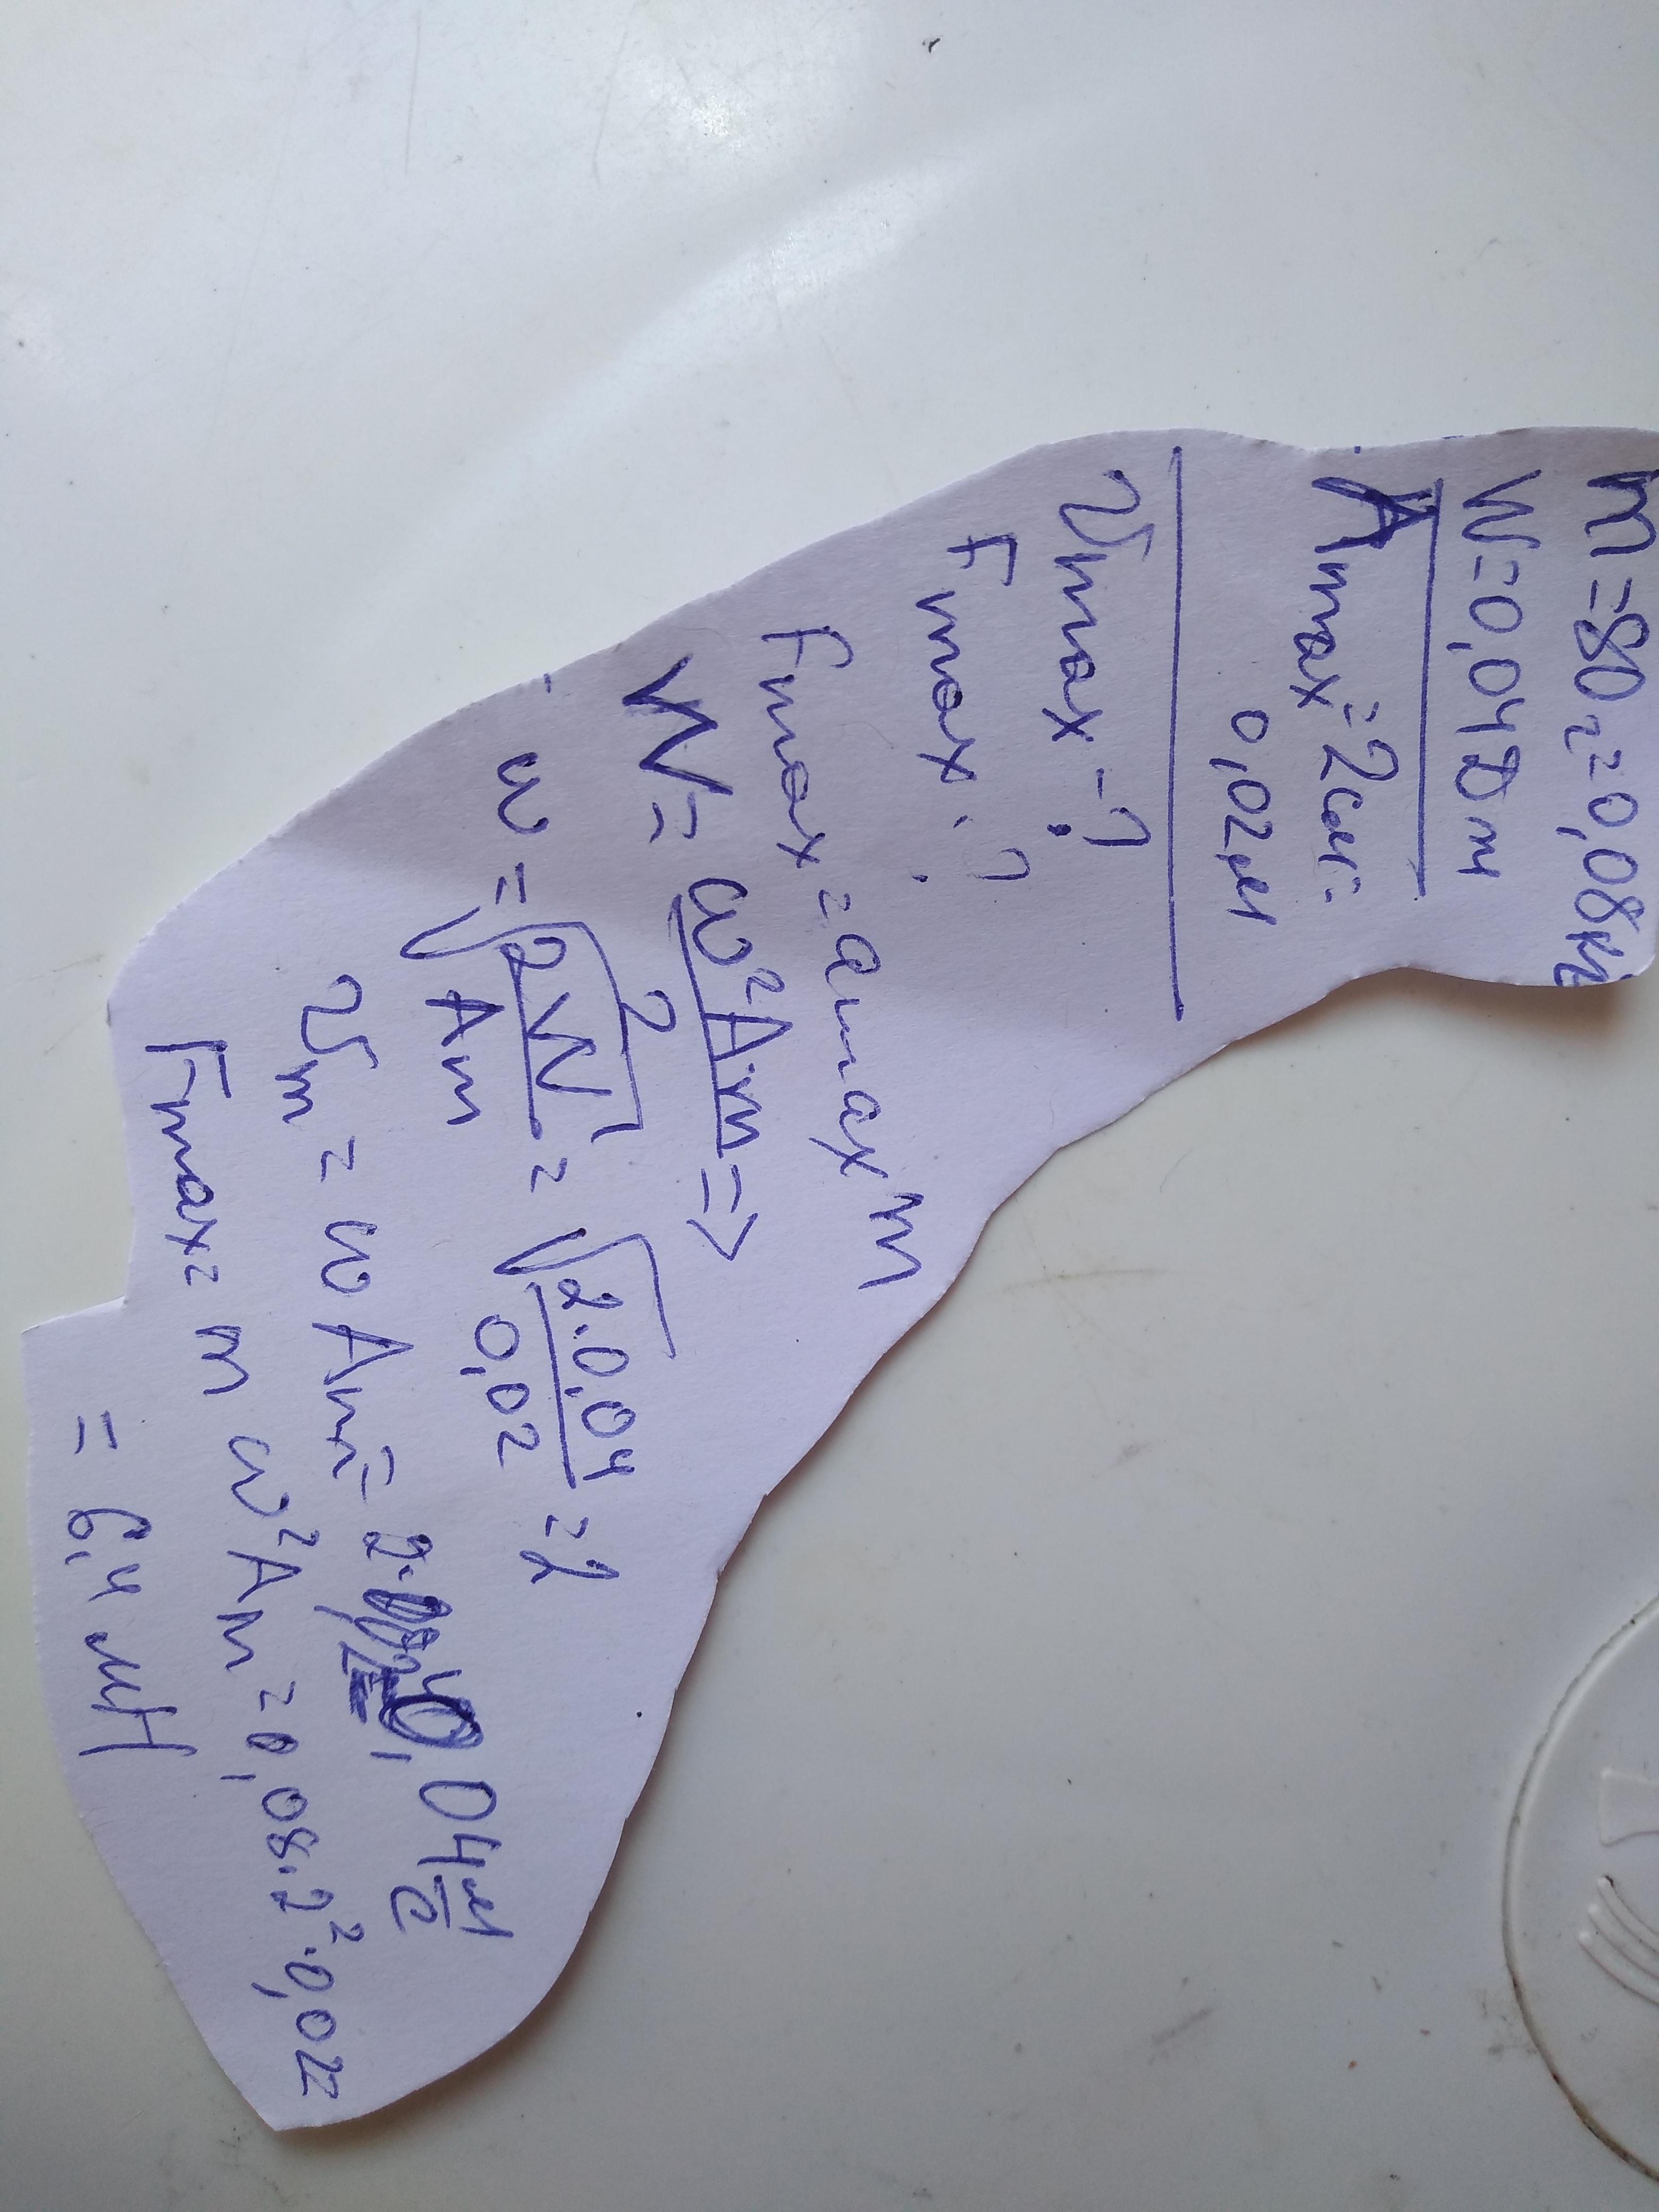 m = 80 г = 0,08 кг
W = 0,04 Дж
Amax = 2 см =
0,02 м
υmax - ?
Fmax - ?
Fmax = amax m
W = ω²Am / 2 =>
ω = √(2W / Am) = √(2·0,04 / 0,02) = 2
υm = ω Am = 2· 0,04 м/с
Fmax = m ω² Am = 0,08·2²·0,02
= 6,4 мН